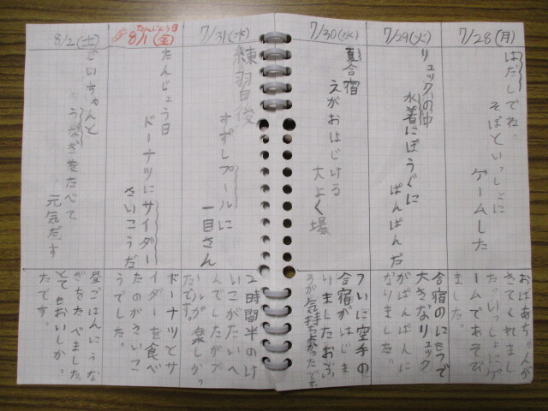 7/28(月)
はだしでね。
そぼといっしょに
ゲームした
おばあちゃんが
きてくれまし
た。いっしょにゲ
ームであそび
ました。
7/29(火)
リュックの中
水着にぼうぐに
ぱんぱんだ
合宿のにもつで
大きなリュック
がぱんぱんに
なりました。
7/30(水)
夏合宿
えがおはじける
大よく場
ついに空手の
合宿がはじま
りましたおふ
ろが気持ちよかったです
7/31(木)
練習後
すずしプールに
一目さん
2時間半のけ
いこがたいへ
んでしたがプ
ールが楽しかっ
たです。
たんじょう日
8/1(金)
たんじょう日
ドーナツにサイダー
さいこうだ
ドーナツとサ
イダーを食べ
たのがさいこ
うでした。
8/2(土)
じいちゃんと
うなぎをたべて
元気だす
昼ごはんにうな
ぎをたべました
とてもおいしかっ
たです